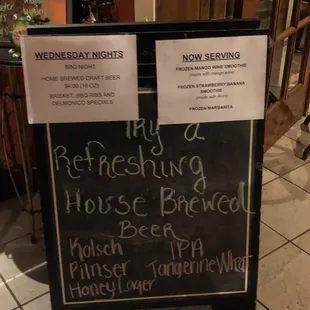 WEDNESDAY NIGHTS
BBQ NIGHT
HOME BREWED DRAFT BEER
$4.00 (16 OZ)
BRISKET, BBQ RIBS AND
DELMONICO SPECIALS
NOW SERVING
FROZEN MANGO WINE SMOOTHIE
made with mango wine
FROZEN STRAWBERRY BANANA
SMOOTHIE
FROZEN MARGARITA
Try a
Refreshing
House Brewed
Beer
Kolsch
Pilnser
Honey Lager
IPA
Tangerine Wheat